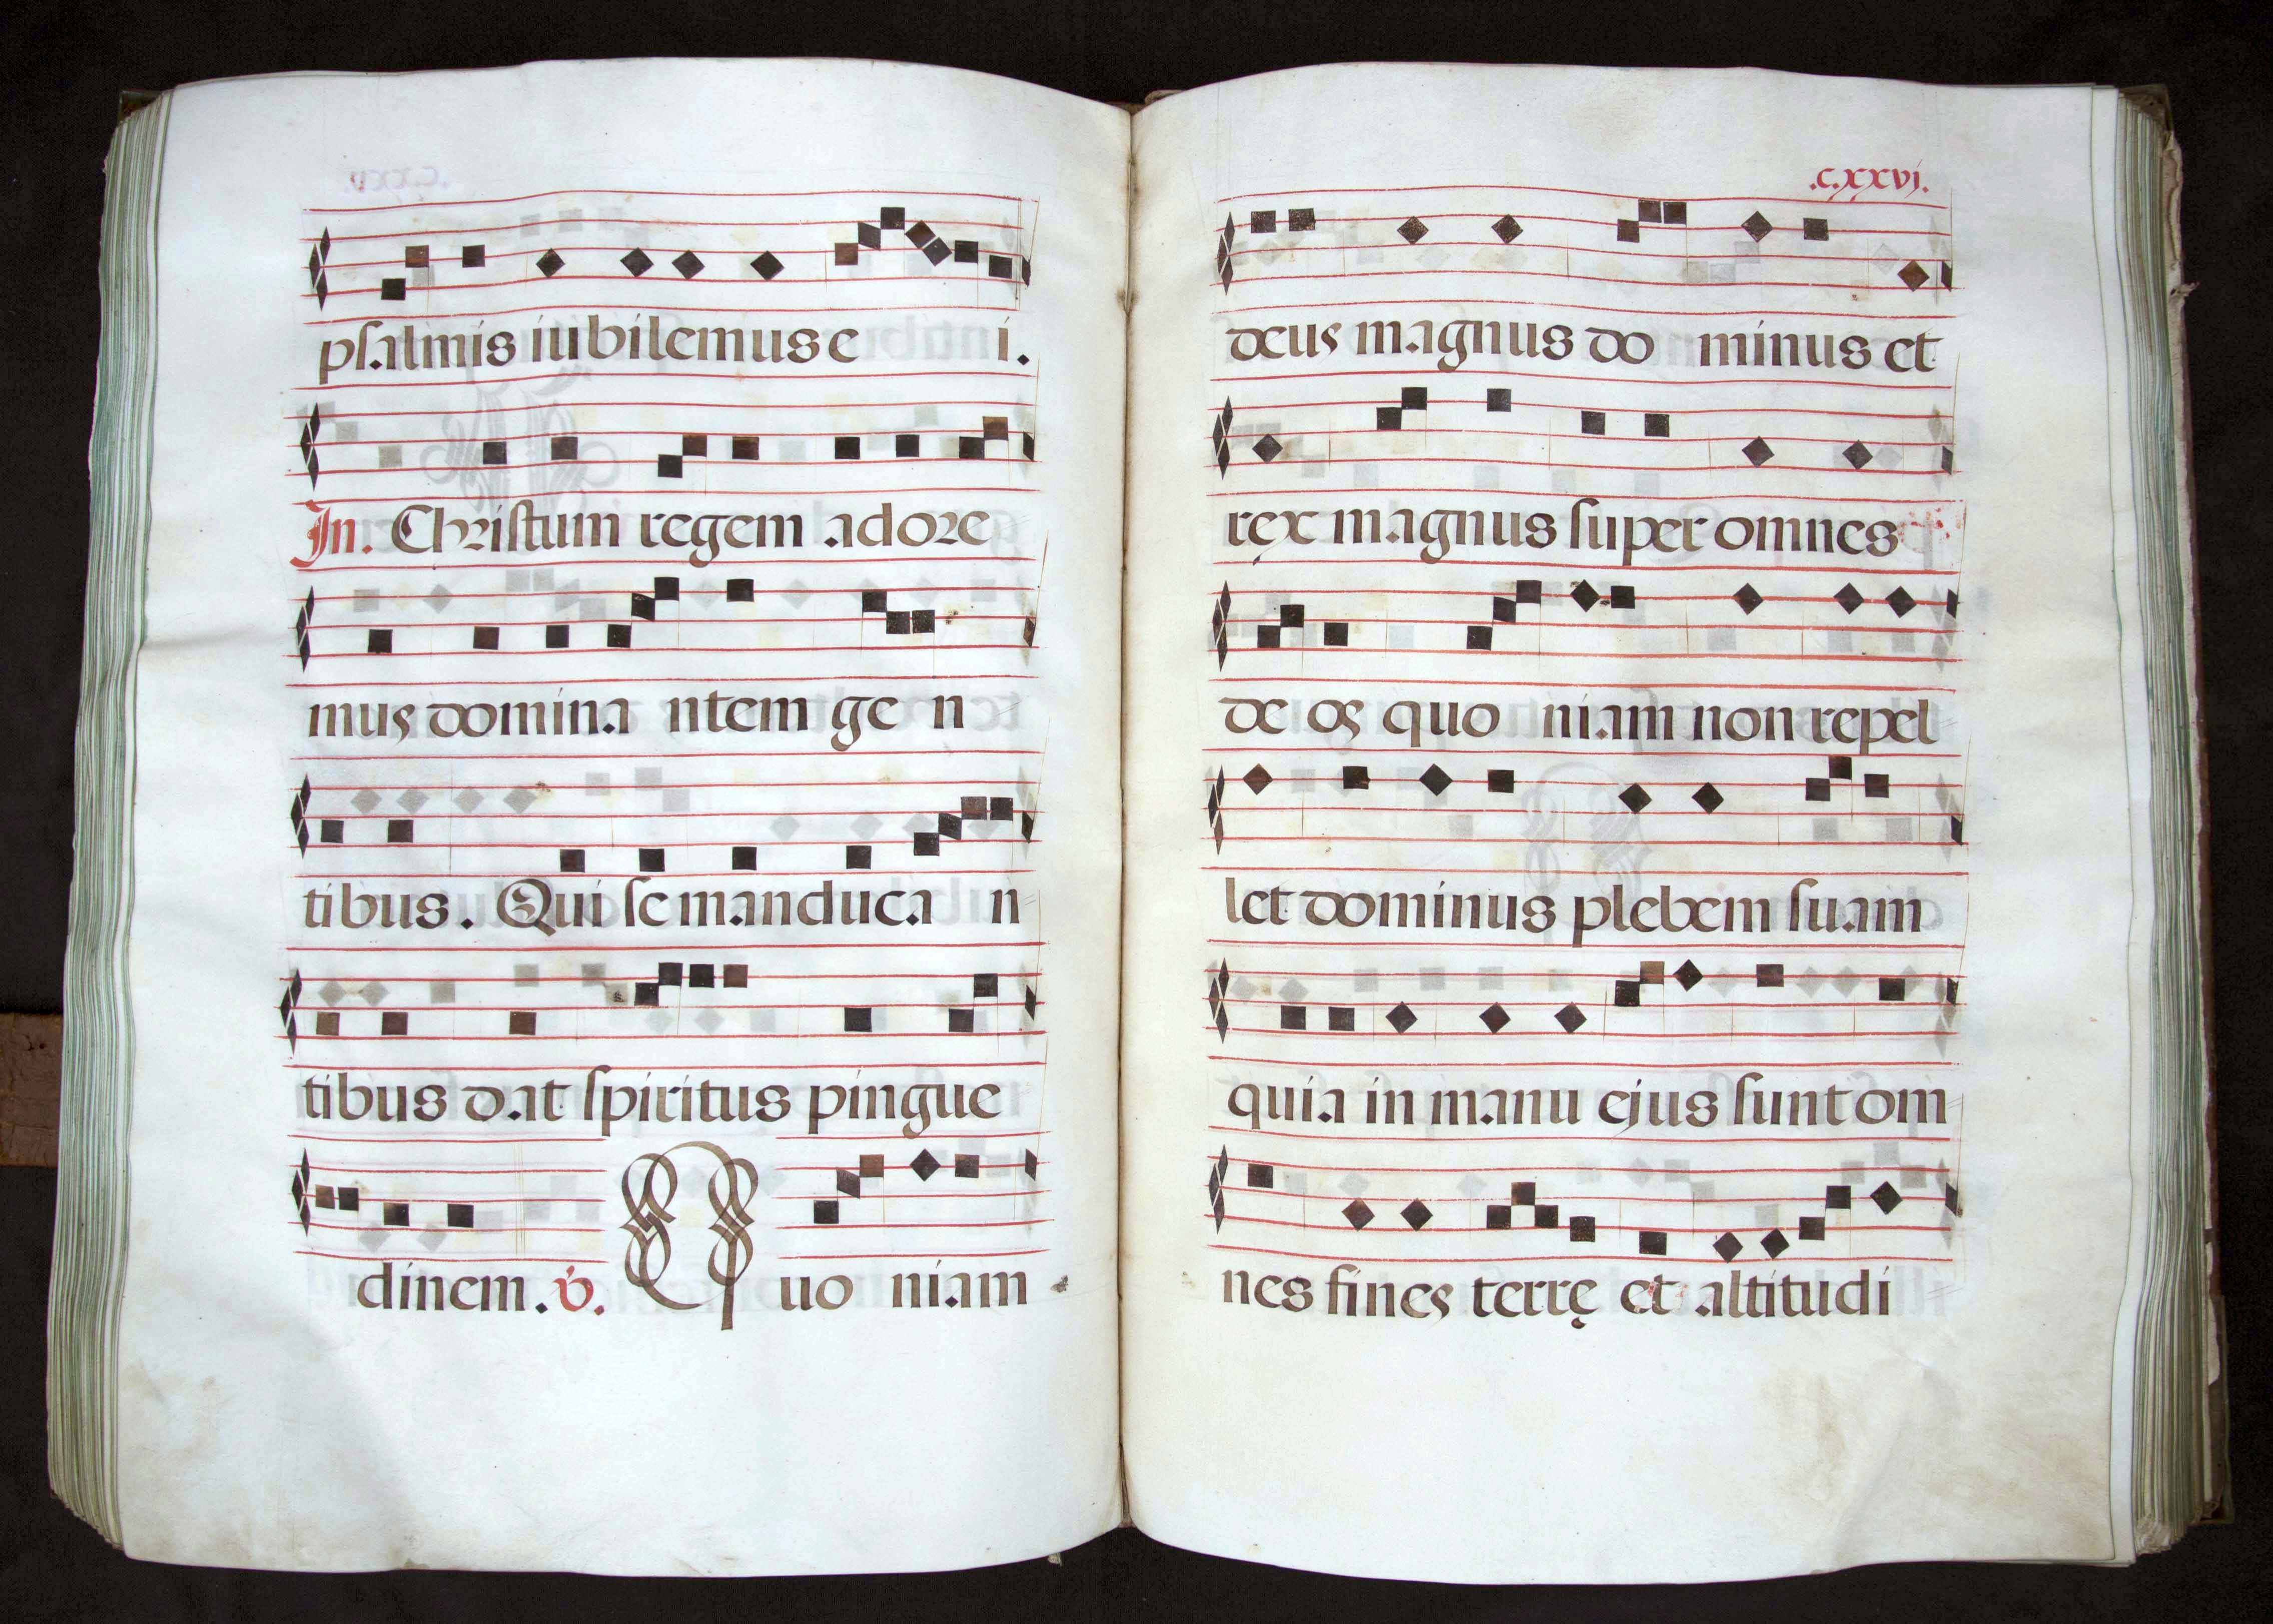 psalmis iubilemus e i.
In. Christum regem adore
mus domina ntem ge n
tibus. Qui se manduca n
tibus dat spiritus pingue
dinem. v. Quo niam
.c.xxvj.
deus magnus do minus et
rex magnus super omnes
de os quo niam non repel
let dominus plebem suam
quia in manu ejus sunt om
nes fines terrę et altitudi